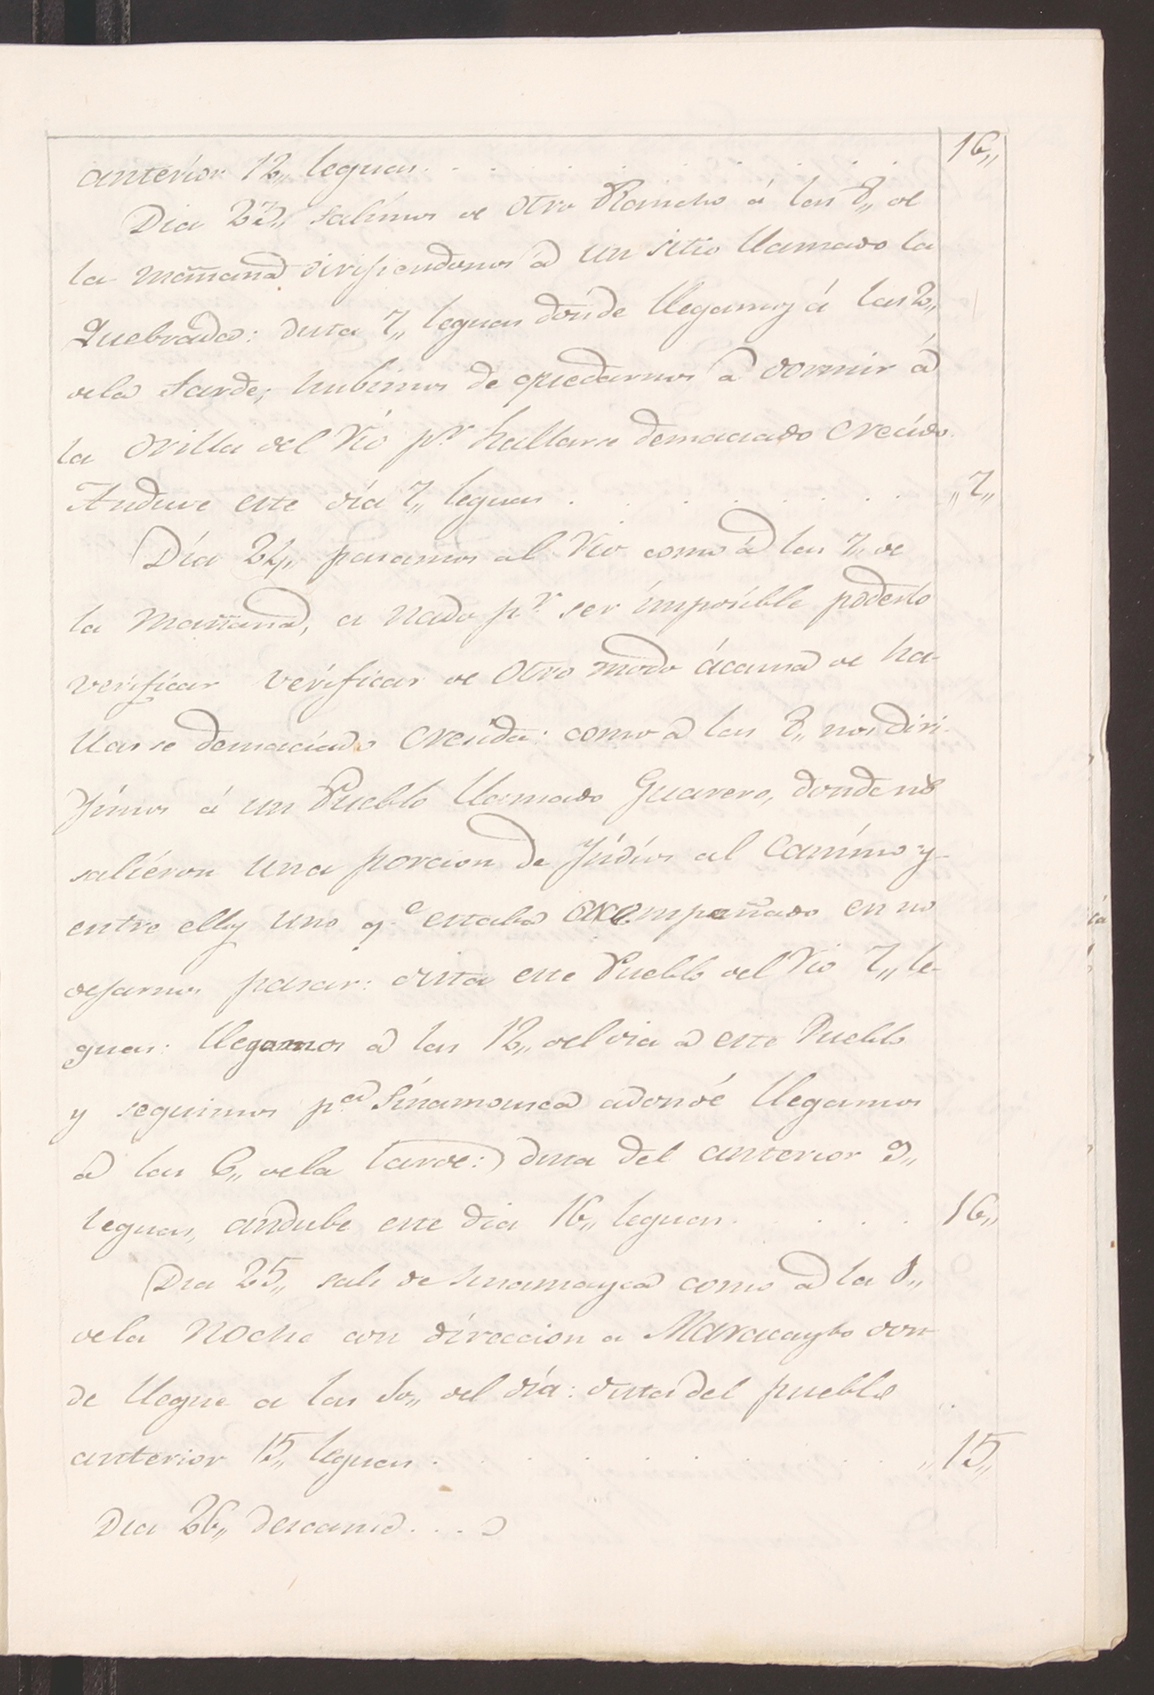 anterior 12,, leguas . . . . . . . . 16,,
Dia 23,, salímos de otro Rancho á las 8,, de
la Mañana dirijiendonos á un sitio llamado la
Quebrada: dista 7,, leguas donde llegamos á las 2,,
dela tarde, hubimos de quedarnos á dormir á
la Orilla del Río pr. hallarse demaciado crecido.
Anduve este día 7,, leguas . . . . . . . ,,7,,
Día 24,, pasamos al Rio como á las 7,, de
la Mañana, a nado pr. ser imposible poderlo
verificar verificar de otro modo ácausa de ha-
llarse demaciado crecida: como á las 8,, nos diri-
jimos á un Pueblo llamado Guarero, donde nos
saliéron una porcion de Yndíos al Camíno y
entre ellos uno qe. estaba empeñado en no
dejarnos pasar: dista este Pueblo del Rio 7,, le-
guas: llegamos á las 12,, del dia á este Pueblo
y seguimos pa. Sínamaica adonde llegámos
á las 6,, dela tarde: dista del anterior 9,,
leguas, andube este dia 16,, leguas . . . . . 16,,
Dia 25,, sali de Sinamayca como á la 8,,
dela Noche con dirección a Maracaybo don-
de llegue a las 10,, del día: dista del pueblo
anterior 15,, leguas . . . . . . . . ,,15,,
Dia 26,, descanso . . . .